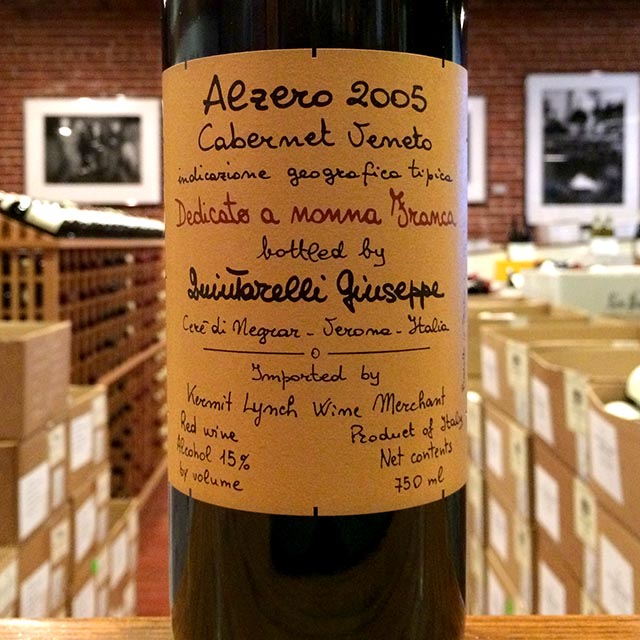 Alzero 2005
Cabernet Veneto
indicazione geografica tipica
Dedicato a nonna Franca
bottled by
Quintarelli Giuseppe
Cerè di Negrar - Verona - Italia
Imported by
Kermit Lynch Wine Merchant
Red wine
Alcohol 15%
by volume
Product of Italy
Net contents
750 ml